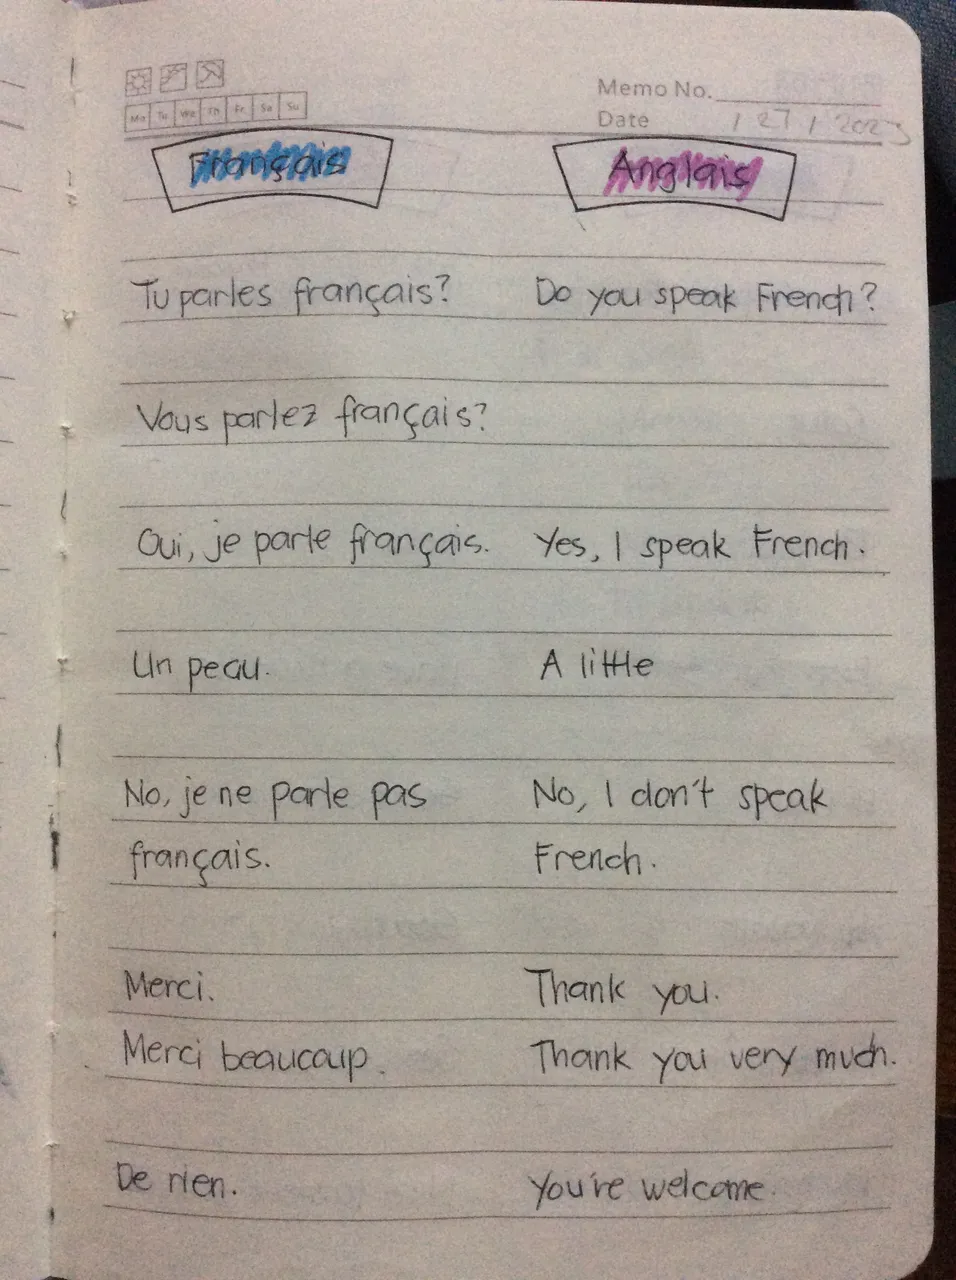 Memo No.
Mo Tu We Th Fr Sa Su
Date / 27 / 2023
Français Anglais
Tu parles français? Do you speak French?
Vous parlez français?
Oui, je parle français. Yes, I speak French.
Un peau. A little
No, je ne parle pas No, I don't speak
français. French.
Merci. Thank you.
Merci beaucoup. Thank you very much.
De rien. You're welcome.